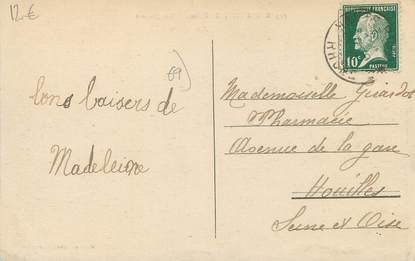 12.€
69
bons baisers de
Madeleine
REPUBLIQUE FRANÇAISE
10c
PASTEUR
Mademoiselle Girardot
Pharmacie
Avenue de la gare
Houilles
Seine et Oise